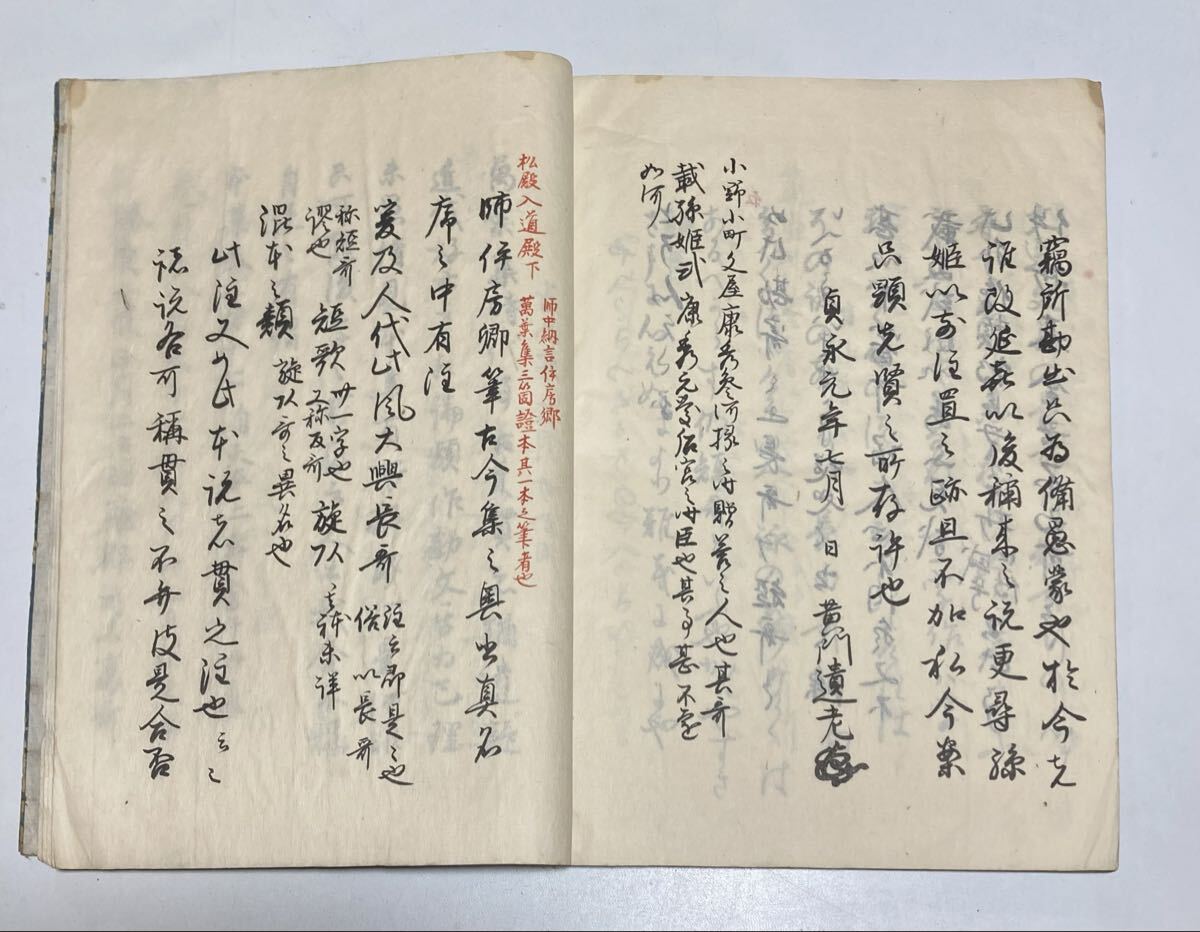 竊所勘出只為備愚蒙也於今者
誰改延喜以後稱来之説更尋孫
姫以前注置之跡且不加私今案
只顕先賢之所存許也
貞永元年七月 日 黄門遺老
小野小町文屋康秀参河掾之時贈答之人也其哥
載孫姫式康秀元慶后宮之時臣也其事甚不審
如何
松殿入道殿下
師中納言伊房郷
萬葉集三箇證本其一本之筆者也
師伊房卿筆古今集之奥書真名
序之中有注
爰及人代此風大興長哥
注云即是之也
俗以長哥
称短哥
謬也
短歌
卅一字也
又称反哥
旋頭
其体未詳
混本之類
旋頭哥之異名也
此注又如此本説者貫之注也云々
諸説各可稱貫之不弁彼是合否